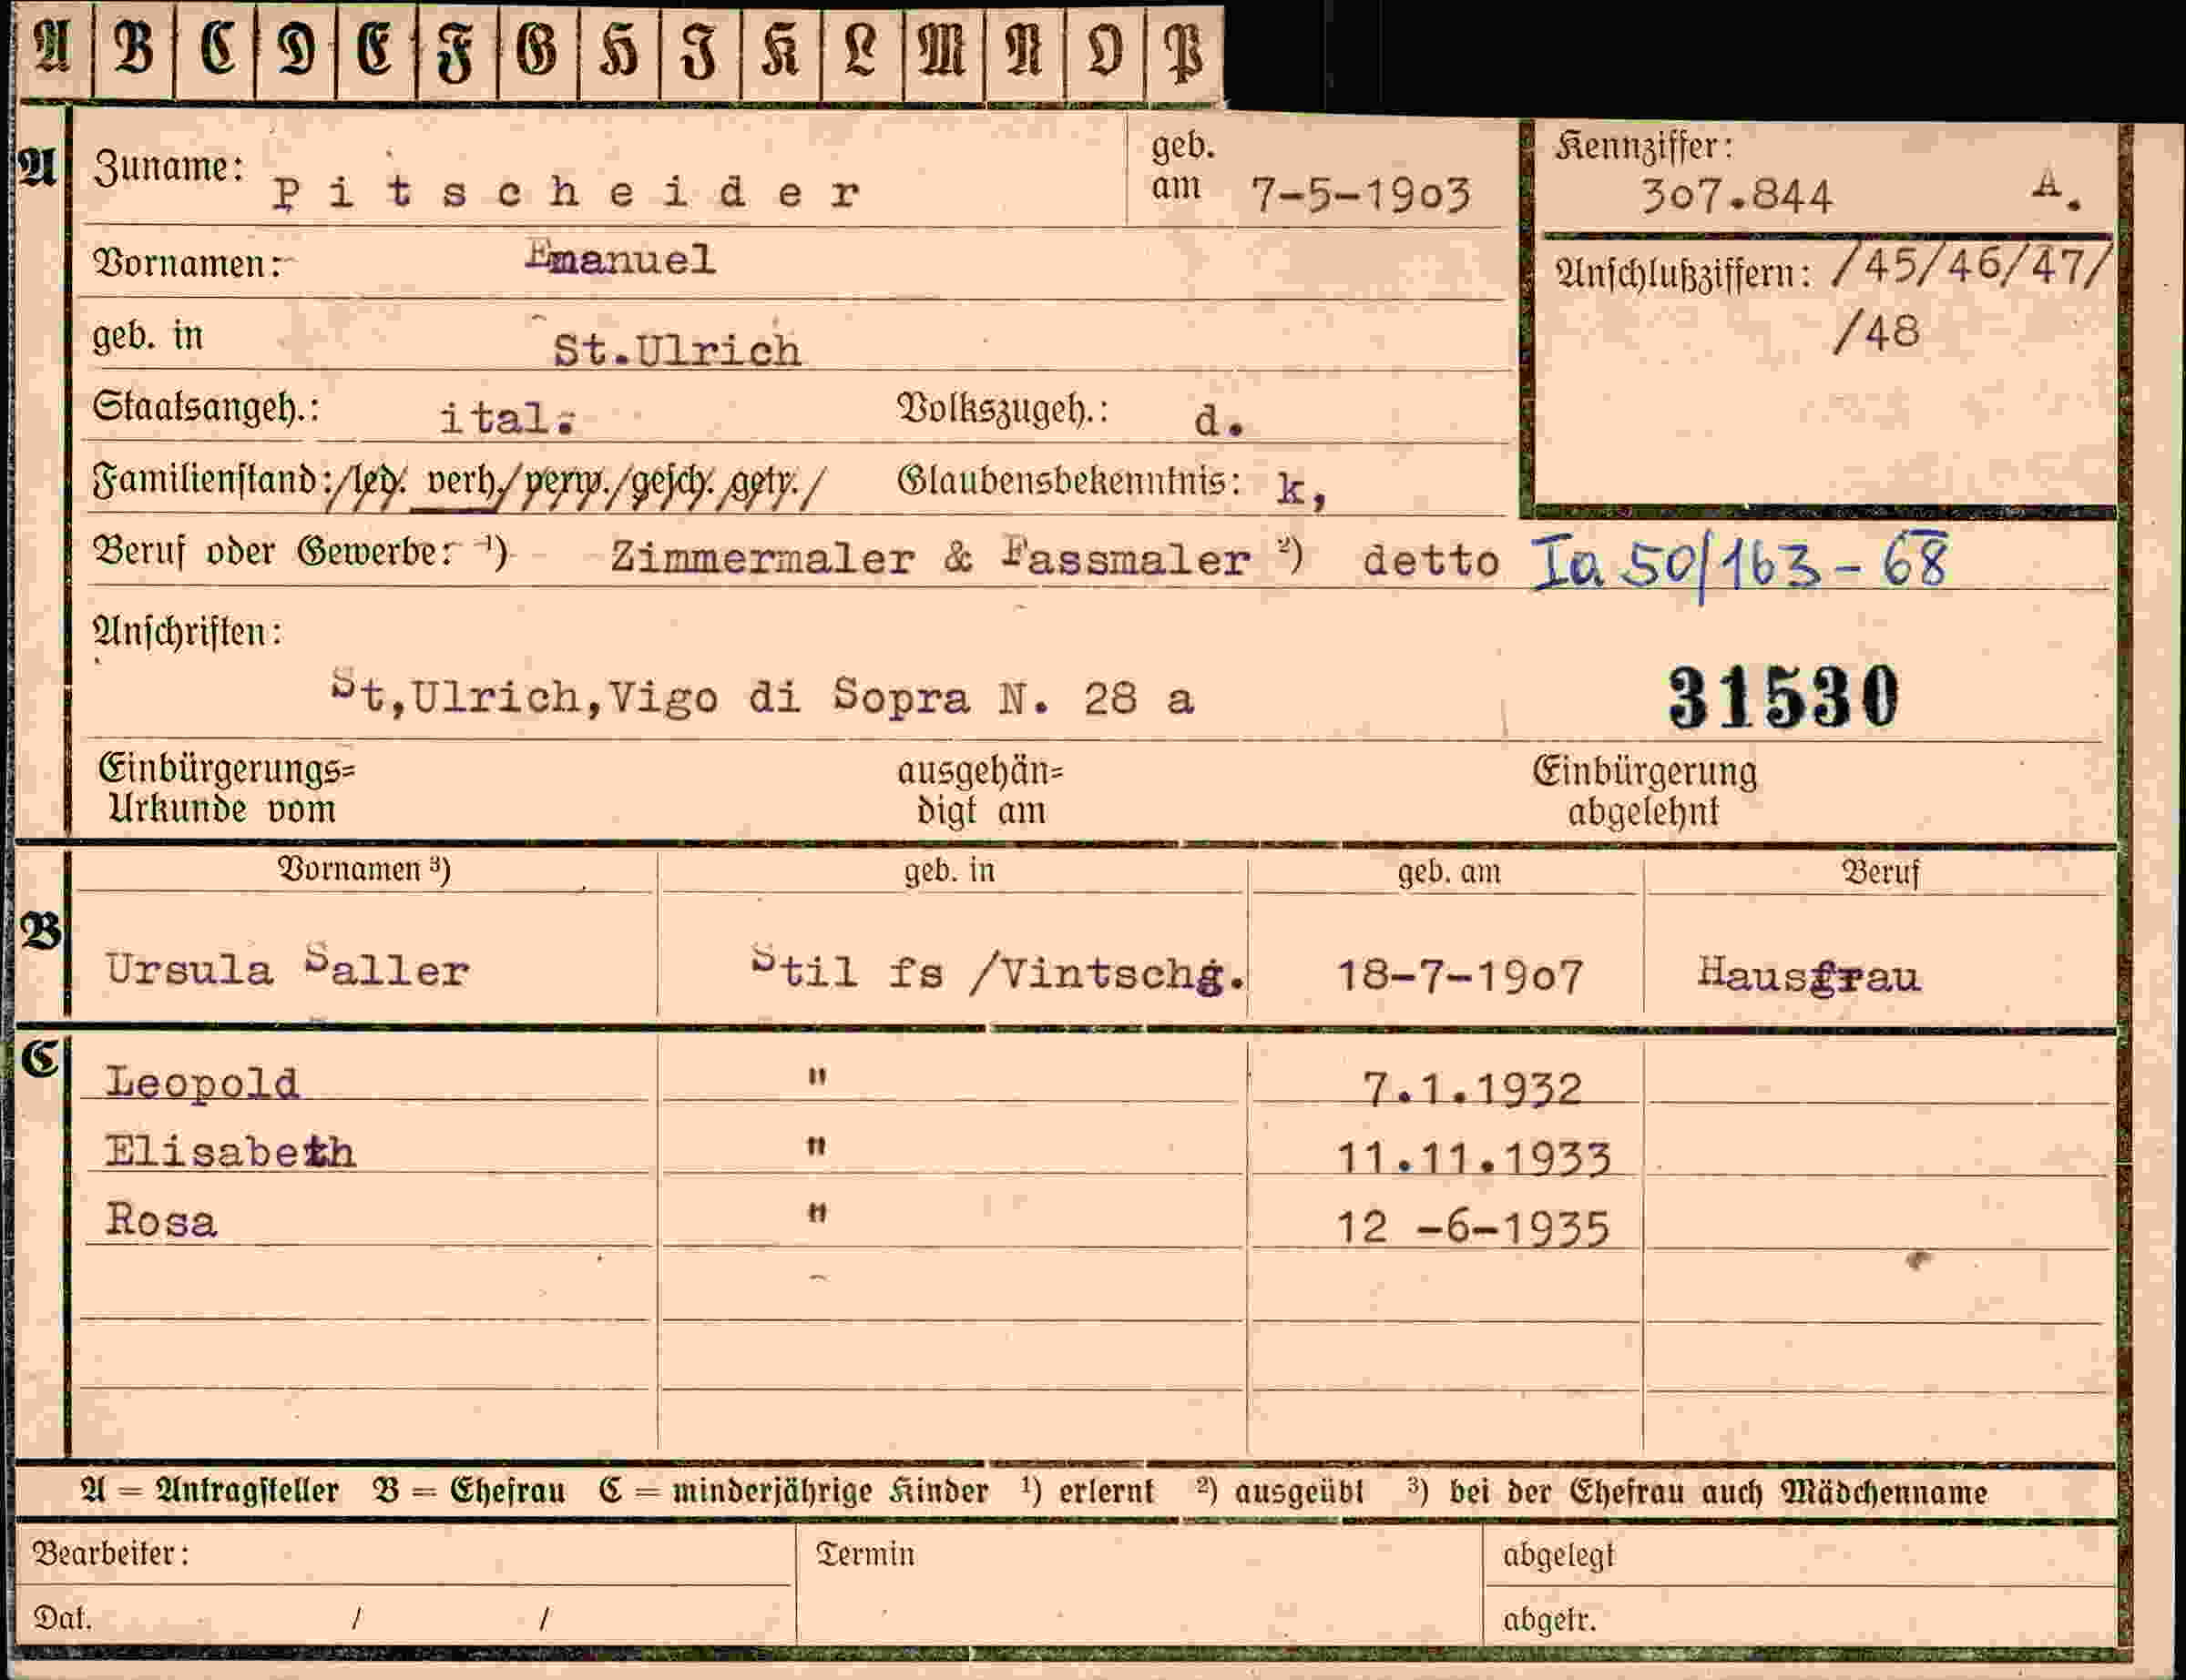 A B C D E F G H I K L M N O P
A Zuname: Pitscheider geb. am 7-5-1903 Kennziffer: 307.844 A.
Vornamen: Emanuel Anschlußziffern: /45/46/47/
geb. in St.Ulrich /48
Staatsangeh.: ital. Volkszugeh.: d.
Familienstand: /led. verh./verw./gesch./getr./ Glaubensbekenntnis: k,
Beruf oder Gewerbe: ¹) Zimmermaler & Fassmaler ²) detto Ia 50/163-68
Anschriften:
St,Ulrich,Vigo di Sopra N. 28 a 31530
Einbürgerungs= ausgehän= Einbürgerung
Urkunde vom digt am abgelehnt
Vornamen ³) geb. in geb. am Beruf
B Ursula Saller Stil fs /Vintschg. 18-7-1907 Hausfrau
C Leopold " 7.1.1932
Elisabeth " 11.11.1933
Rosa " 12 -6-1935
A = Antragsteller B = Ehefrau C = minderjährige Kinder ¹) erlernt ²) ausgeübt ³) bei der Ehefrau auch Mädchenname
Bearbeiter: Termin abgelegt
Dat. / / abgetr.